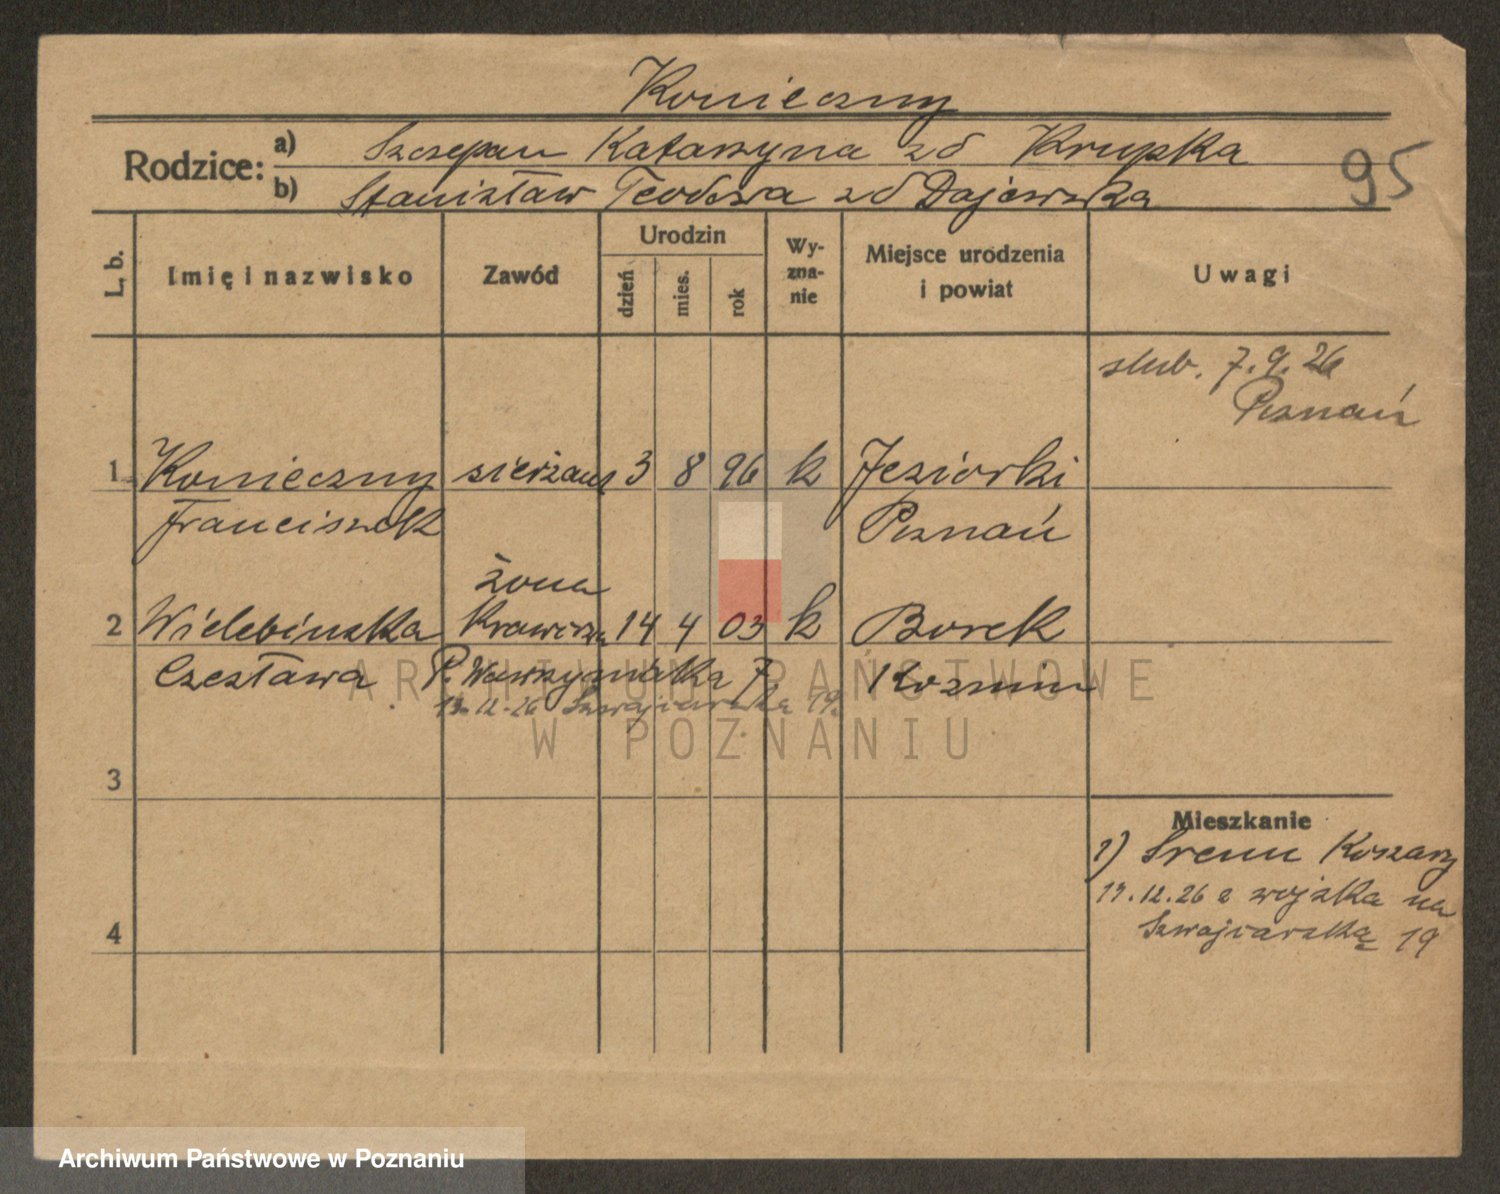 Konieczny
Rodzice: a) Szczepan Katarzyna zd Krupka
b) Stanisław Teodora zd Dajewska
95
L. b. Imię i nazwisko Zawód Urodzin dzień mies. rok Wy-zna-nie Miejsce urodzenia i powiat Uwagi
slub. 7.9.26
Poznań
1 Konieczny sierżant 3 8 96 k Jeziorki
Franciszek Poznań
żona
2 Wielebińska Krawcza 14 4 03 k Borek
Czesława P. Wawrzyniaka 7 Kozmin
13.12.26 Szwajcarska 19
ARCHIWUM PAŃSTWOWE
W POZNANIU
3
Mieszkanie
1) Srem Koszary
13.12.26 z wojska na
Szwajcarską 19
4
Archiwum Państwowe w Poznaniu